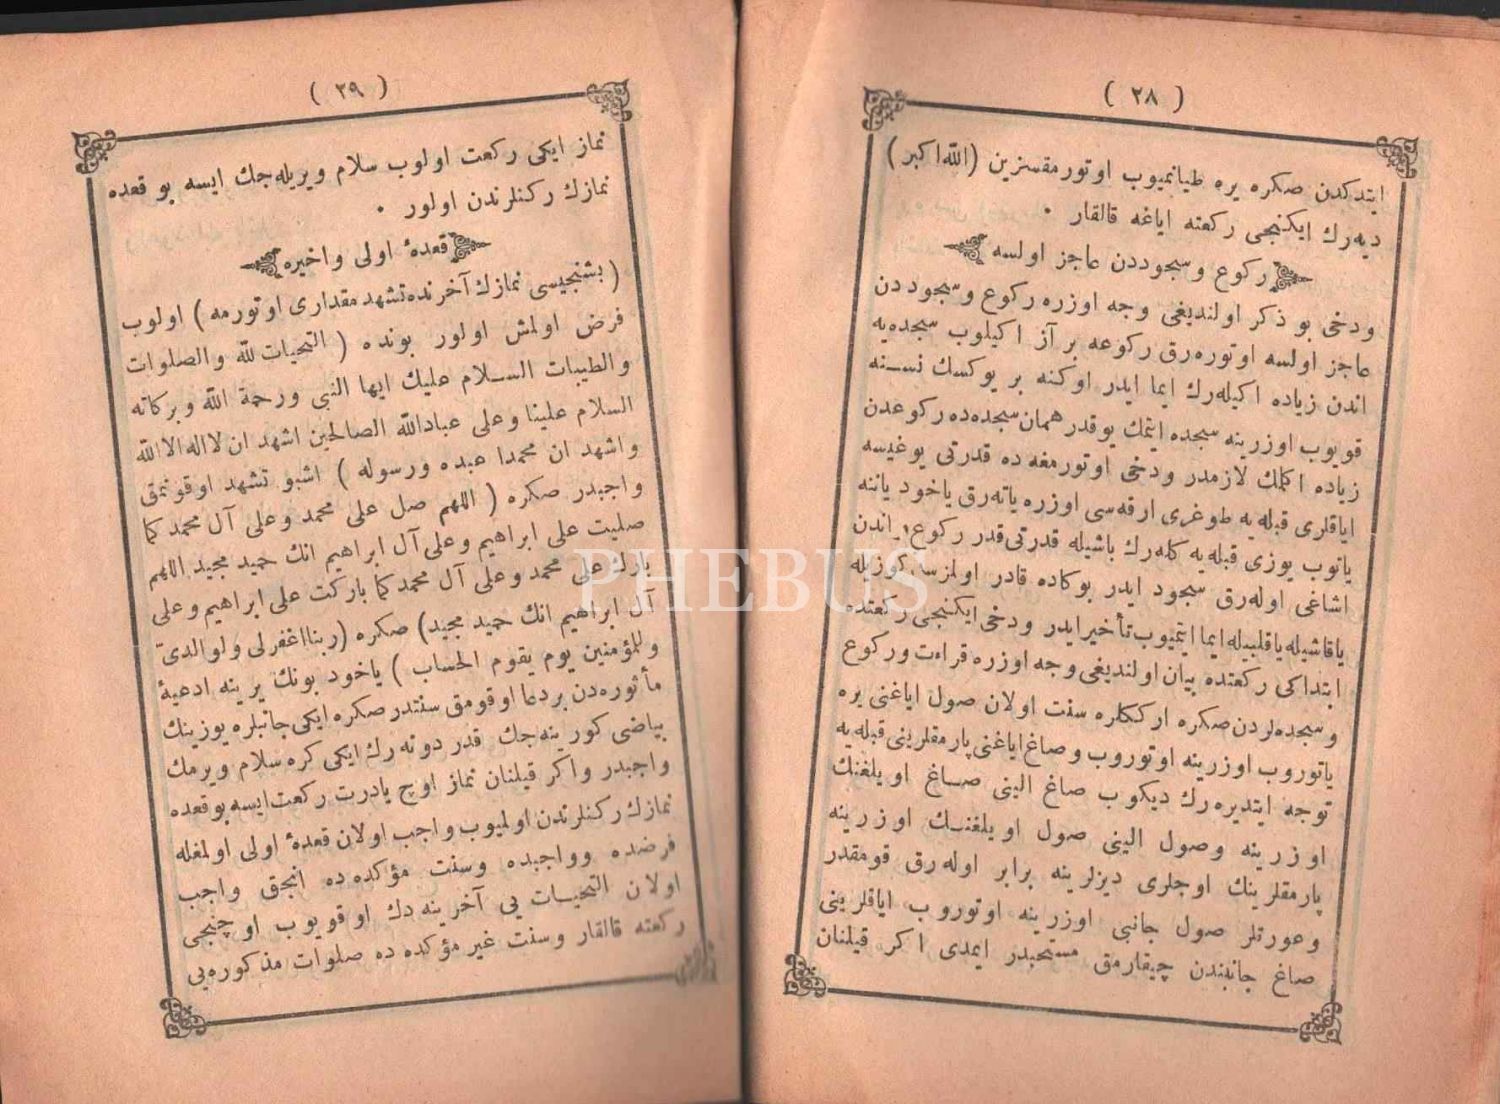 ( ٢٨ )
ايتدكدن صكره يره طيانميوب اوتورمقسزين (الله اكبر)
ديه‌رك ايكنجى ركعته اياغه قالقار ٠
ركوع وسجوددن عاجز اولسه
ودخى بو ذكر اولنديغى وجه اوزره ركوع وسجوددن
عاجز اولسه اوتوره‌رق ركوعه بر آز اكيلوب سجده‌يه
اندن زياده اكيله‌رك ايما ايدر اوكنه بر يوكسك نسنه
قويوب اوزرينه سجده ايتمك يوقدر همان سجده‌ده ركوعدن
زياده اكمك لازمدر ودخى اوتورمغه ده قدرتى يوغيسه
اياقلرى قبله‌يه طوغرى ارقه‌سى اوزره ياته‌رق ياخود ياننه
ياتوب يوزى قبله‌يه كله‌رك باشيله قدرتى قدر ركوع اندن
اشاغى اوله‌رق سجود ايدر بوكاده قادر اولمزسه كوزيله
ياقاشيله ياقلبيله ايما ايتميوب تأخير ايدر ودخى ايكنجى ركعتده
ابتداكى ركعتده بيان اولنديغى وجه اوزره قراءت وركوع
وسجده‌لردن صكره ارككلره سنت اولان صول اياغنى يره
ياتوروب اوزرينه اوتوروب وصاغ اياغنى پارمقلرينى قبله‌يه
توجه ايتديره‌رك ديكوب صاغ الينى صاغ اويلغنك
اوزرينه وصول الينى صول اويلغنك اوزرينه
پارمقلرينك اوجلرى ديزلرينه برابر اوله‌رق قومقدر
وعورتلر صول جانبى اوزرينه اوتوروب اياقلرينى
صاغ جانبندن چيقارمق مستحبدر ايمدى اكر قيلنان
( ٢٩ )
نماز ايكى ركعت اولوب سلام ويريله‌جك ايسه بو قعده
نمازك ركنلرندن اولور ٠
قعدهٔ اولى واخيره
( بشنجيسى نمازك آخرنده تشهد مقدارى اوتورمه ) اولوب
فرض اولمش اولور بونده ( التحيات لله والصلوات
والطيبات السلام عليك ايها النبى ورحمة الله وبركاته
السلام علينا وعلى عباد الله الصالحين اشهد ان لااله الا الله
واشهد ان محمدا عبده ورسوله ) اشبو تشهد اوقونمق
واجبدر صكره ( اللهم صل على محمد وعلى آل محمد كما
صليت على ابراهيم وعلى آل ابراهيم انك حميد مجيد اللهم
بارك على محمد وعلى آل محمد كما باركت على ابراهيم وعلى
آل ابراهيم انك حميد مجيد) صكره (ربنا اغفرلى ولوالدىّ
وللمؤمنين يوم يقوم الحساب ) ياخود بونك يرينه ادعيهٔ
مأثوره‌دن بردعا اوقومق سنتدر صكره ايكى جانبلره يوزينك
بياضى كورينه‌جك قدر دونه‌رك ايكى كره سلام ويرمك
واجبدر واكر قيلنان نماز اوچ يادرت ركعت ايسه بوقعده
نمازك ركنلرندن اولميوب واجب اولان قعدهٔ اولى اولمغله
فرضده وواجبده وسنت مؤكده‌ده انجق واجب
اولان التحيات يى آخرينه دك اوقويوب اوچنجى
ركعته قالقار وسنت غير مؤكده ده صلوات مذكوره‌يى
PHEBUS